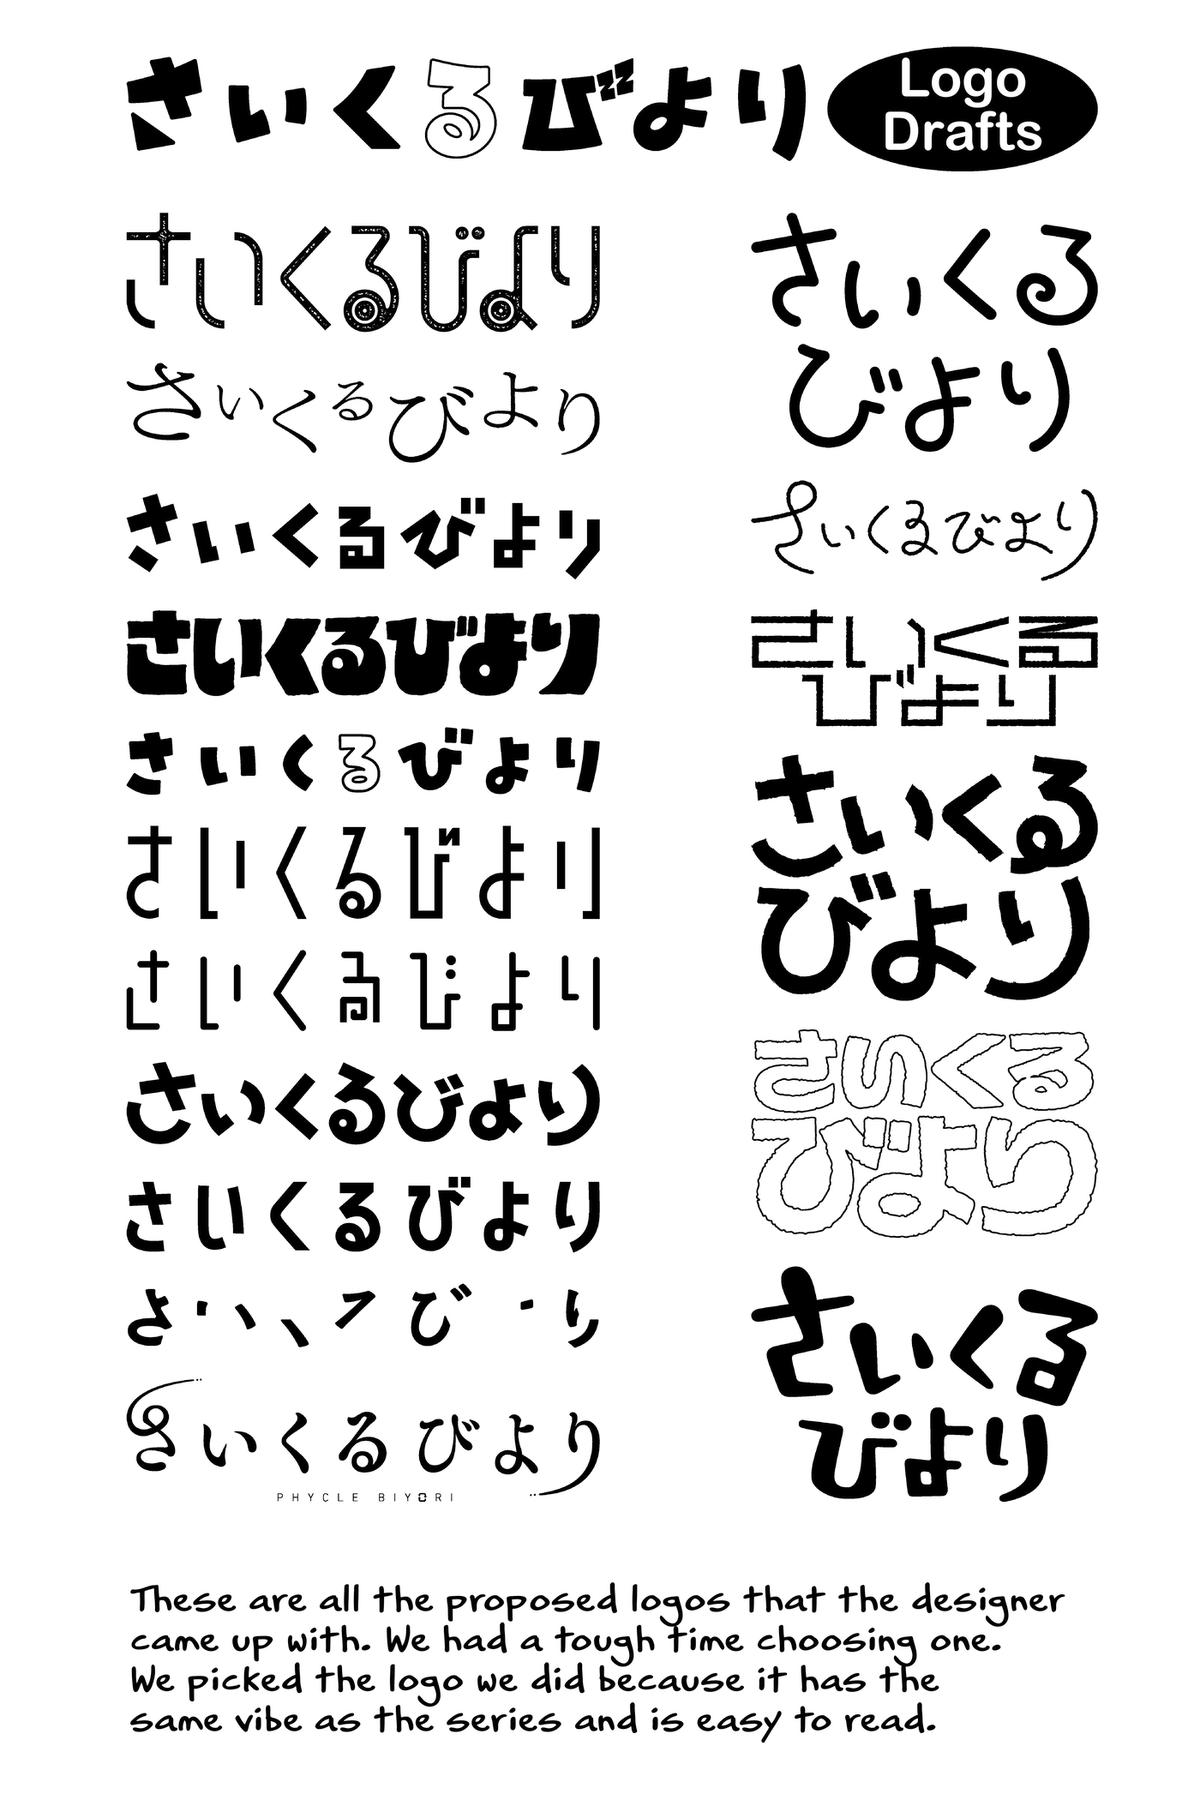 さいくるびより
Logo
Drafts
さいくるびより
さいくるびより
さいくるびより
さいくるびより
さいくるびより
さいくるびより
さいくるびより
さいくるびより
さいくるびより
さ
び
り
さいくるびより
PHYCLE BIYORI
さいくる
びより
さいくるびより
さいくる
びより
さいくる
びより
さいくる
びより
さいくる
びより
These are all the proposed logos that the designer
came up with. We had a tough time choosing one.
We picked the logo we did because it has the
same vibe as the series and is easy to read.